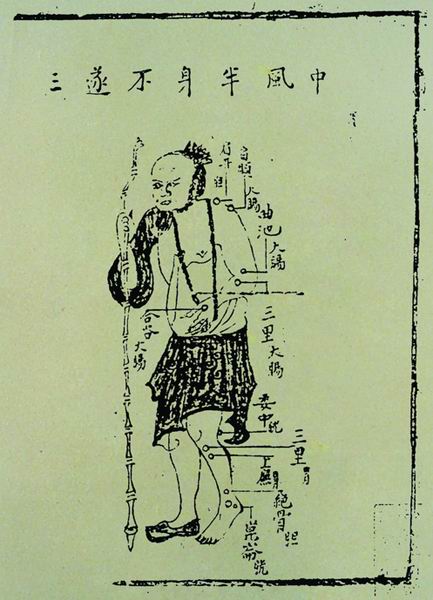 中風半身不遂三
肩井
肩髃大腸
曲池大腸
合谷大腸
三里大腸
委中
三里胃
上廉
絕骨
崑崙